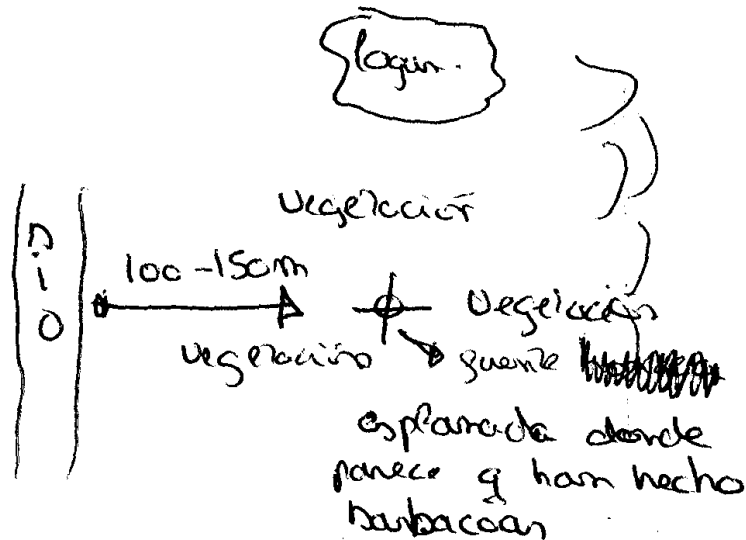 Vegetación
RIO
100-150m
Vegetación
Vegetación
fuente
esplanada donde
parece q han hecho
barbacoas